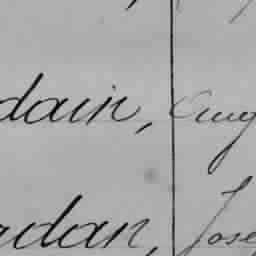 dain, Aug
rdan, Jose